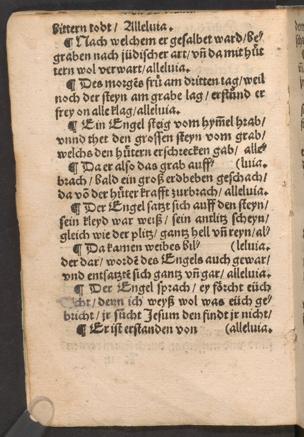 bittern todt / Alleluia.
¶ Nach welchem er gesalbet ward / be⸗
graben nach jüdischer art / vñ da mit hüt
tern wol verwart / alleluia.
¶ Des morgẽs frü am dritten tag / weil
noch der steyn am grabe lag / erstůnd er
frey on alle klag / alleluia.
¶ Ein Engel steig vom hym̃el hrab /
vnnd thet den grossen steyn vom grab /
welchs den hütern erschrecken gab / alle⸗
¶ Da er also das grab auff⸗ (luia.
brach / bald ein groß erdbeben geschach /
da võ der hüter krafft zurbrach / alleluia.
¶ Der Engel satzt sich auff den steyn /
sein kleyd war weiß / sein antlitz scheyn /
gleich wie der plitz / gantz hell vñ reyn / al⸗
¶ Da kamen weibes bil⸗ (leluia.
der dar / wordẽ des Engels auch gewar /
vnd entsatztẽ sich gantz vñ gar / alleluia.
¶ Der Engel sprach / ey förcht eüch
nicht / denn ich weyß wol was eüch ge⸗
bricht / jr sůcht Jesum den findt jr nicht /
¶ Er ist erstanden von (alleluia.